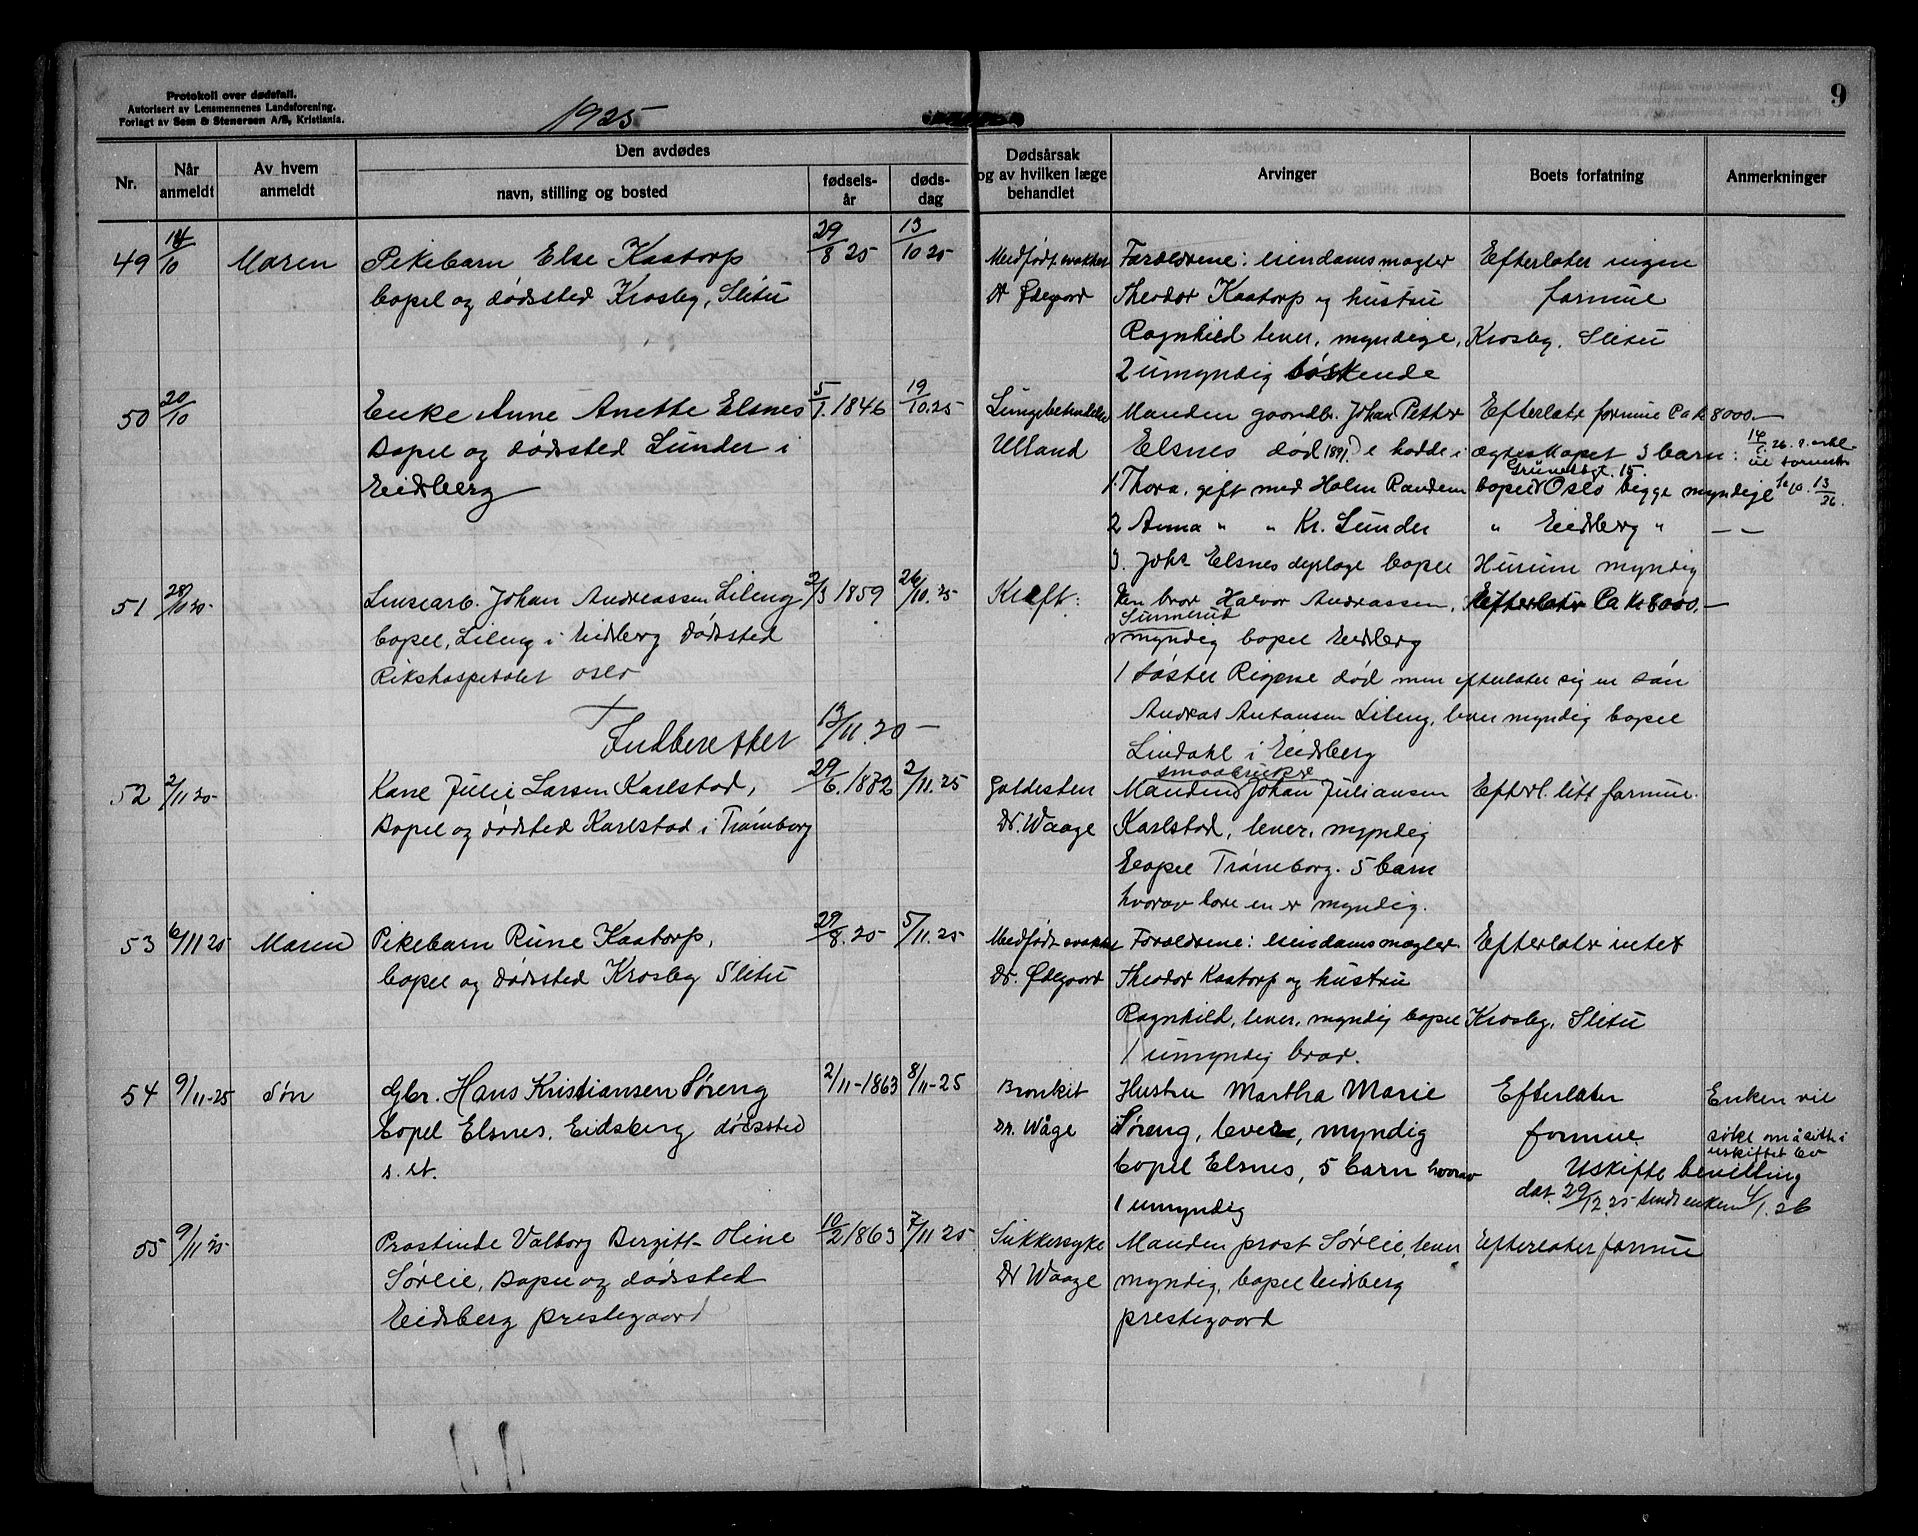 Protokoll over dødsfall.
Autorisert av Lensmennenes Landsforening.
Forlagt av Sem & Stenersen A/S, Kristiania.
1925
9
Nr.
Når anmeldt
Av hvem anmeldt
Den avdødes
navn, stilling og bosted
fødsels-år
døds-dag
Dødsårsak og av hvilken læge behandlet
Arvinger
Boets forfatning
Anmerkninger
49 14/10 Moren Pikebarn Else Kaatorp 29/8 25 13/10 25 Medfødt svakhet Forældrene: eiendomsmægler Efterlater ingen
bopel og dødsted Krosby, Slitu Dr Ødegaard Theodor Kaatorp og hustru formue
Ragnhild lever, myndige, Krosby, Slitu
2 umyndig søskende
50 20/10 Enke Anne Anette Elsnes 5/1. 1846 19/10. 25 Lungebetendelse Manden gaardbr. Johan Petter Efterlatr formue Ca k 8000.—
Bopel og dødsted Lunder i Ulland Elsnes død 1891. hadde i ægteskapet 3 barn:
Eidsberg 1 Thora, gift med Holm Randem bopel Oslo begge myndige
2 Anna " " Kr. Lunder " Eidsberg " — —
3. Johs Elsnes bopel Hurum myndig
51 28/10 20 Johan Andreassen Lileng 2/3 1859 26/10. 25 Kræft: En bror Halvor Andreassen, Efterlatr Ca Kr 8000.—
Sunnerud
bopel, Lileng i Eidsberg dødsted myndig bopel Eidsberg
Rikshospitalet Oslo 1 søster død men efterlater sig en søn
Indberettet 13/11. 20 — Andreas Antonsen Lileng, lever myndig bopel
Lindahl i Eidsberg
smaabruker
52 2/11 20 Kone Julie Larsen Karlstad, 29/6. 1872 2/11. 25 Galdesten Manden Johan Juliansen Efterl. litt formue.
Bopel og dødsted Karlstad i Trømborg Dr. Waage Karlstad, lever, myndig
Bopel Trømborg. 5 barn
hvorav bare en er myndig.
53 6/11 25 Moren Pikebarn Rune Kaatorp, 29/8. 25 5/11. 25 Medfødt svakhet Forældrene: eiendomsmægler Efterlatr intet
bopel og dødsted Krosby Slitu Dr. Ødegaard Theodor Kaatorp og hustru
Ragnhild, lever, myndig bopel Krosby, Slitu
1 umyndig bror.
54 9/11-25 Søn Gbr. Hans Kristiansen Søreng 2/11-1863 8/11-25 Bronkit Hustru Martha Marie Efterlater Enken vil
bopel Elsnes, Eidsberg dødssted Dr. Wåge Søreng, lever, myndig formue søke om å sitte i
uskiftet bo
s. st. bopel Elsnes, 5 barn hvorav Uskifte bevilling
1 umyndig dat. 29/12. 25 sendt enken 4/1. 26
55 9/11 25 Prostinde Valborg Bergitte Oline 10/2 1863 7/11 25 Sukkersyke Manden prost Sørlie, lever Efterlater formue
Sørlie, Bopel og dødssted Dr Waage myndig, bopel Eidsberg
Eidsberg prestegaard prestegaard